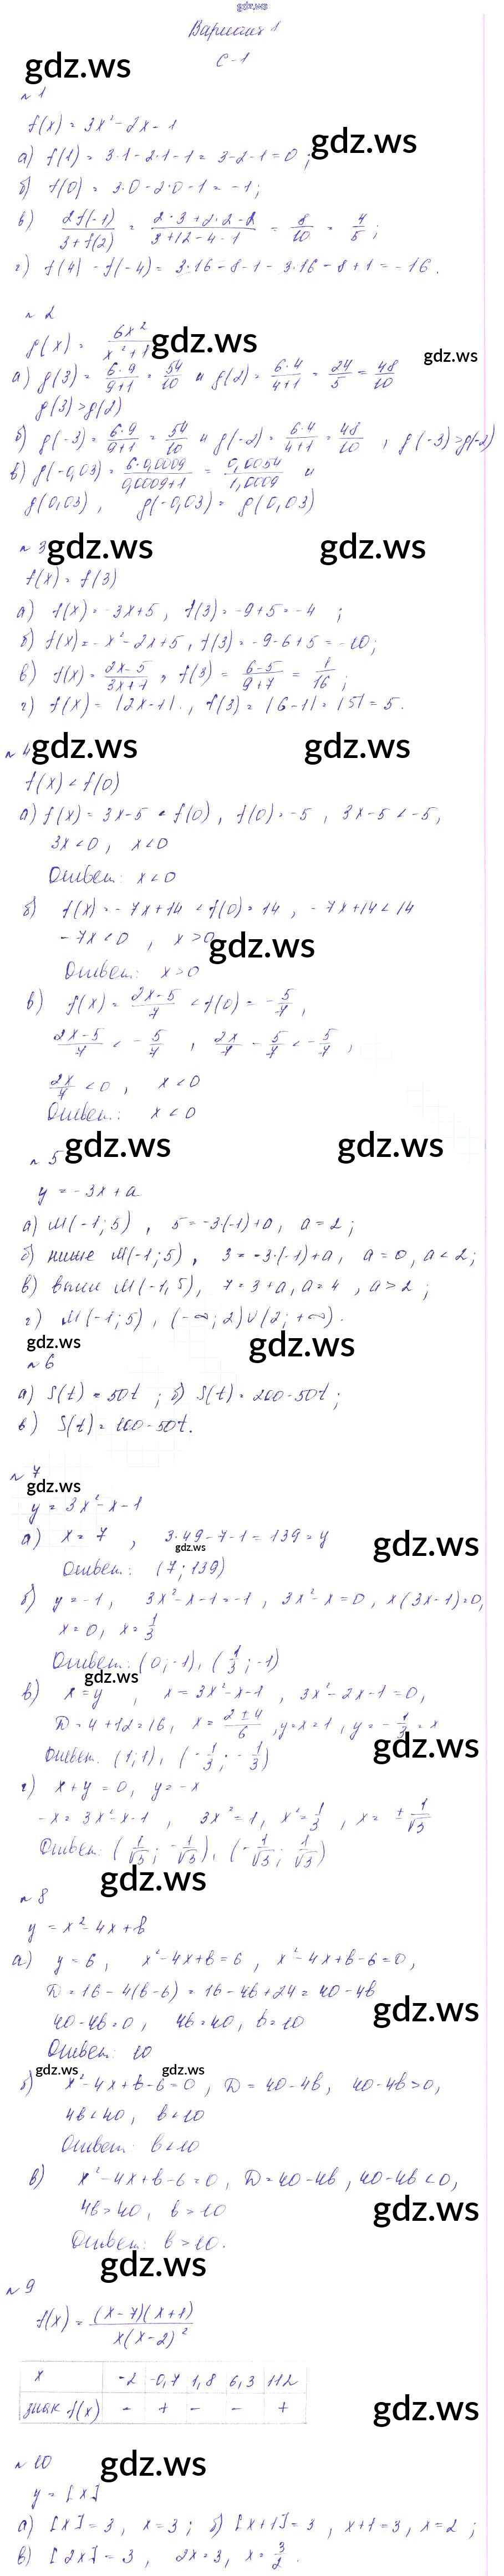 gdz.ws
Вариант 1
С-1
gdz.ws
№ 1
f(x) = 3x² - 2x - 1
gdz.ws
а) f(1) = 3·1 - 2·1 - 1 = 3 - 2 - 1 = 0 ;
б) f(0) = 3·0 - 2·0 - 1 = -1 ;
в) 2f(-1)/(3+f(2)) = (2·3+2·2-2)/(3+12-4-1) = 8/10 = 4/5 ;
г) f(4) - f(-4) = 3·16 - 8 - 1 - 3·16 - 8 + 1 = -16.
№ 2
g(x) = 6x²/(x²+1)
gdz.ws
gdz.ws
а) g(3) = 6·9/(9+1) = 54/10 и g(2) = 6·4/(4+1) = 24/5 = 48/10
g(3) > g(2)
б) g(-3) = 6·9/(9+1) = 54/10 и g(-2) = 6·4/(4+1) = 48/10 , g(-3) > g(-2)
в) g(-0,03) = 6·0,0009/(0,0009+1) = 0,0054/1,0009 и
g(0,03) , g(-0,03) = g(0,03)
№ 3
gdz.ws
gdz.ws
f(x) = f(3)
а) f(x) = -3x+5 , f(3) = -9+5 = -4 ;
б) f(x) = -x²-2x+5 , f(3) = -9-6+5 = -10 ;
в) f(x) = (2x-5)/(3x+7) , f(3) = (6-5)/(9+7) = 1/16 ;
г) f(x) = |2x-1| , f(3) = |6-1| = |5| = 5.
№ 4
gdz.ws
gdz.ws
f(x) < f(0)
а) f(x) = 3x-5 < f(0) , f(0) = -5 , 3x-5 < -5,
3x < 0 , x < 0
Ответ: x < 0
б) f(x) = -7x+14 < f(0) = 14 , -7x+14 < 14
-7x < 0 , x > 0
gdz.ws
Ответ: x > 0
в) f(x) = (2x-5)/7 < f(0) = -5/7 ,
(2x-5)/7 < -5/7 , 2x/7 - 5/7 < -5/7 ,
2x/7 < 0 , x < 0
Ответ: x < 0
gdz.ws
gdz.ws
№ 5
y = -3x + a
а) M(-1;5) , 5 = -3·(-1)+a, a = 2 ;
б) ниже M(-1;5) , 3 = -3·(-1)+a, a = 0, a < 2 ;
в) выше M(-1,5), 7 = 3+a, a = 4 , a > 2 ;
г) M(-1;5) , (-∞;2)∪(2;+∞).
gdz.ws
gdz.ws
№ 6
а) S(t) = 50t ; б) S(t) = 200-50t ;
в) S(t) = 100-50t.
№ 7
gdz.ws
y = 3x²-x-1
а) x = 7 , 3·49-7-1 = 139 = y
gdz.ws
gdz.ws
Ответ: (7;139)
б) y = -1 , 3x²-x-1 = -1 , 3x²-x = 0 , x(3x-1) = 0,
x = 0, x = 1/3
Ответ: (0;-1), (1/3;-1)
gdz.ws
в) x = y , x = 3x²-x-1 , 3x²-2x-1 = 0,
D = 4+12 = 16, x = (2±4)/6 , y = x = 1 , y = -1/3 = x
gdz.ws
Ответ: (1;1), (-1/3;-1/3)
г) x+y = 0, y = -x
-x = 3x²-x-1 , 3x² = 1, x² = 1/3 , x = ±1/√3
Ответ: (1/√3;-1/√3), (-1/√3;1/√3)
gdz.ws
№ 8
y = x²-4x+b
а) y = 6 , x²-4x+b = 6 , x²-4x+b-6 = 0,
D = 16-4(b-6) = 16-4b+24 = 40-4b
gdz.ws
40-4b = 0 , 4b = 40, b = 10
Ответ: 10
gdz.ws
gdz.ws
б) x²-4x+b-6 = 0 , D = 40-4b, 40-4b > 0,
4b < 40, b < 10
Ответ: b < 10
в) x²-4x+b-6 = 0 , D = 40-4b, 40-4b < 0,
4b > 40, b > 10
gdz.ws
Ответ: b > 10.
gdz.ws
№ 9
f(x) = (x-7)(x+1)/(x(x-2)²)
x -2 -0,7 1,8 6,3 112
знак f(x) - + - - +
gdz.ws
№ 10
gdz.ws
y = [x]
а) [x] = 3 , x = 3 ; б) [x+1] = 3 , x+1 = 3, x = 2 ;
в) [2x] = 3 , 2x = 3, x = 3/2 .